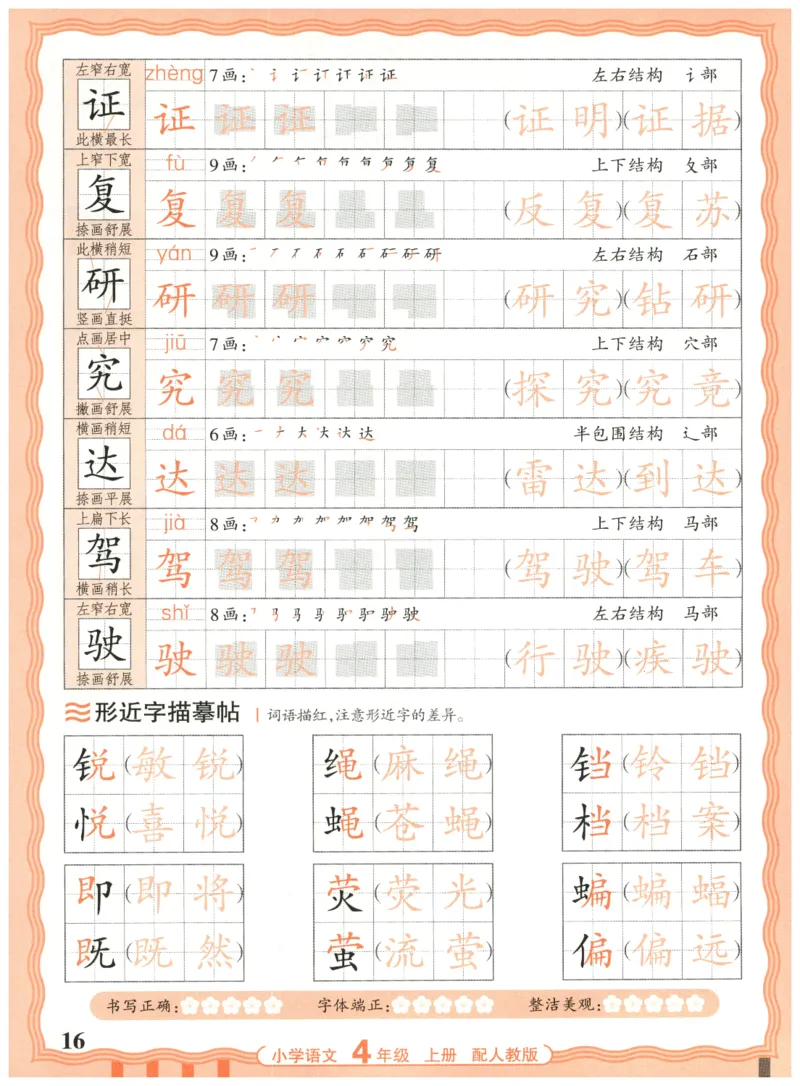 左窄右宽 zhèng 7画: 左右结构 讠部
证 证 证 证 (证明)(证据)
此横最长
上窄下宽 fù 9画: 上下结构 夊部
复 复 复 复 (反复)(复苏)
捺画舒展
此横稍短 yán 9画: 左右结构 石部
研 研 研 研 (研究)(钻研)
竖画直挺
点画居中 jiū 7画: 上下结构 穴部
究 究 究 究 (探究)(究竟)
撇画舒展
横画稍短 dá 6画: 半包围结构 辶部
达 达 达 达 (雷达)(到达)
捺画平展
上扁下长 jià 8画: 上下结构 马部
驾 驾 驾 驾 (驾驶)(驾车)
横画稍长
左窄右宽 shǐ 8画: 左右结构 马部
驶 驶 驶 驶 (行驶)(疾驶)
捺画舒展
形近字描摹帖 词语描红,注意形近字的差异。
锐(敏锐) 绳(麻绳) 铛(铃铛)
悦(喜悦) 蝇(苍蝇) 档(档案)
即(即将) 荧(荧光) 蝙(蝙蝠)
既(既然) 萤(流萤) 偏(偏远)
书写正确: 字体端正: 整洁美观:
16
小学语文 4年级 上册 配人教版